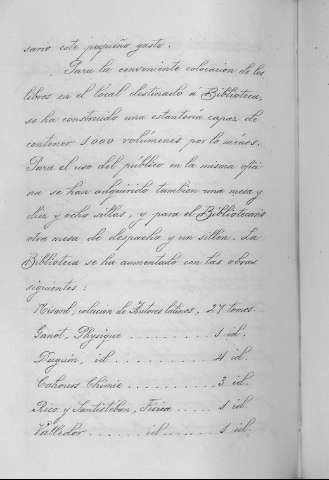 sario este pequeño gasto.
Para la conveniente colocacion de los
libros en el local destinado á Biblioteca,
se ha construido una estantería capaz de
contener 1000 volúmenes por lo ménos.
Para el uso del público en la misma ofici
na se han adquirido tambien una mesa y
diez y ocho sillas, y para el Bibliotecario
otra mesa de despacho y un sillon. La
Biblioteca se ha aumentado con las obras
siguientes:
Nisard, colecion de Autores latinos, 27 tomos.
Ganot, Physique ........ 1 id.
Daguin, id ........ 4 id.
Cahours Chimie ........ 3 id.
Rico y Santisteban, Fisica ..... 1 id.
Valledor ....... id ....... 1 id.